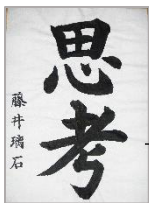 思考
藤井璃石